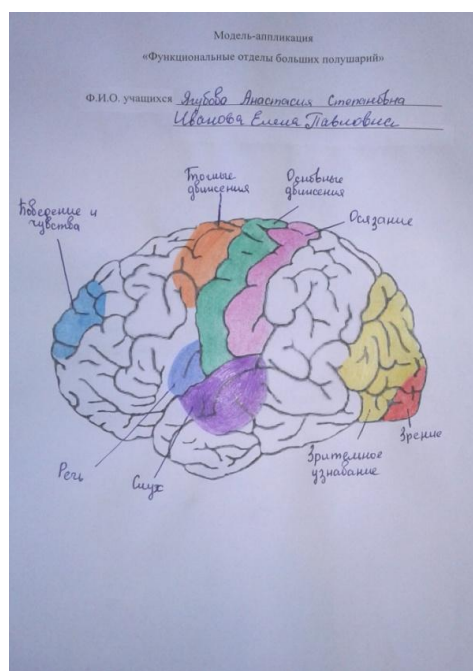 Модель-аппликация
«Функциональные отделы больших полушарий»
Ф.И.О. учащихся Ягубова Анастасия Степановна
Иванова Елена Павловна
Точные
движения
Основные
движения
Поведение и
чувства
Осязание
Речь
Слух
Зрительное
узнавание
Зрение